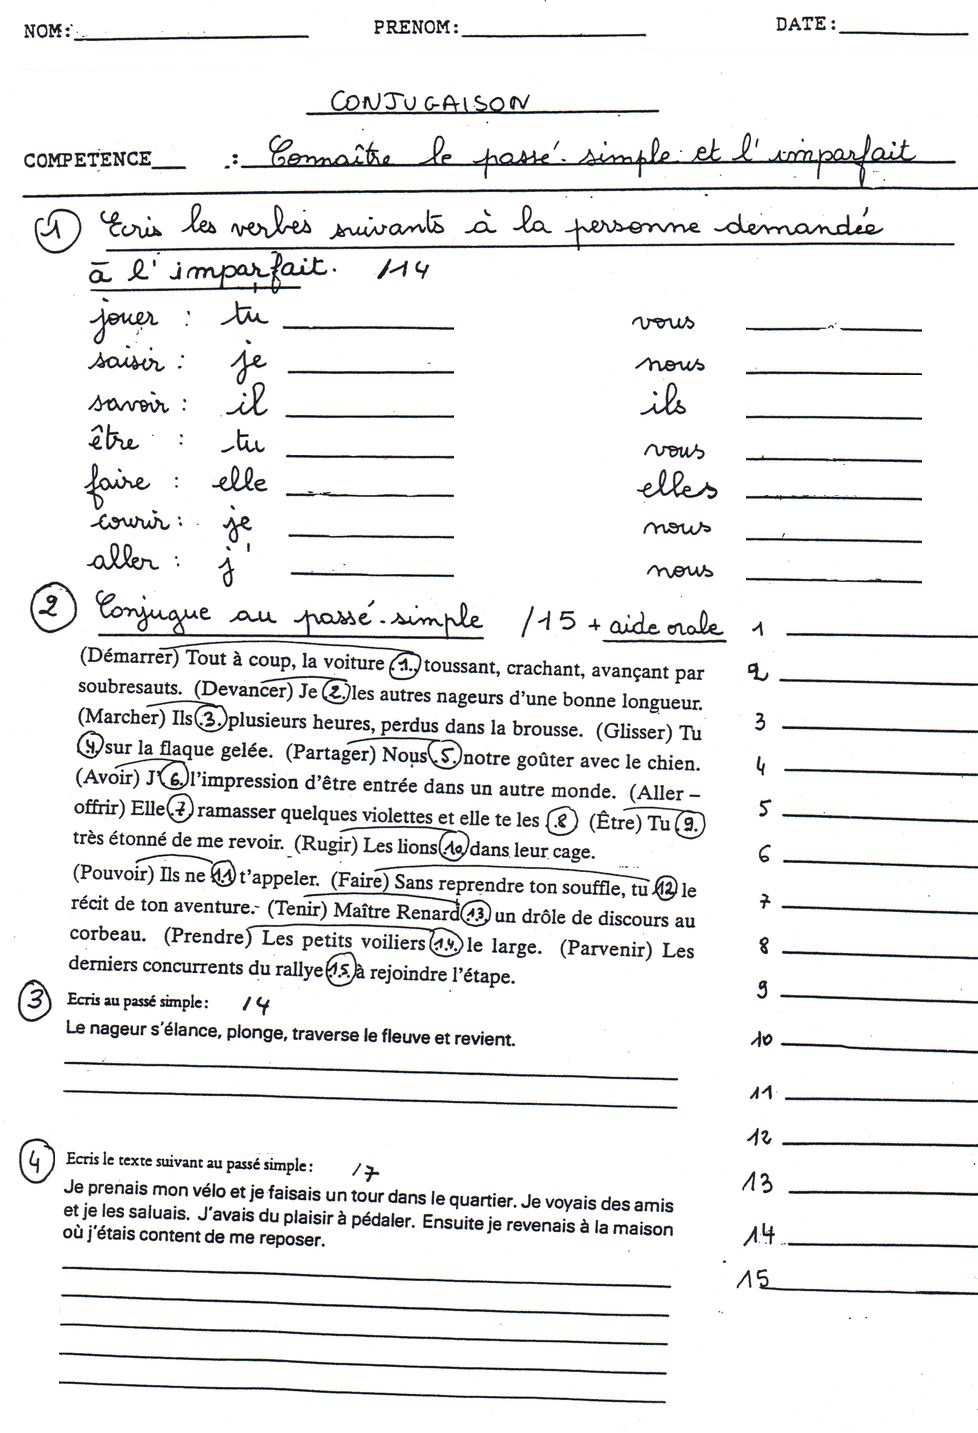 NOM: PRENOM: DATE:
CONJUGAISON
COMPETENCE : Connaître le passé-simple et l'imparfait
1 Ecris les verbes suivants à la personne demandée
à l'imparfait. /14
jouer : tu vous
saisir : je nous
savoir : il ils
être : tu vous
faire : elle elles
courir : je nous
aller : j' nous
2 Conjugue au passé-simple /15 + aide orale
(Démarrer) Tout à coup, la voiture 1. toussant, crachant, avançant par
soubresauts. (Devancer) Je 2. les autres nageurs d'une bonne longueur.
(Marcher) Ils 3. plusieurs heures, perdus dans la brousse. (Glisser) Tu
4 sur la flaque gelée. (Partager) Nous 5. notre goûter avec le chien.
(Avoir) J' 6. l'impression d'être entrée dans un autre monde. (Aller –
offrir) Elle 7 ramasser quelques violettes et elle te les .8 (Être) Tu 9.
très étonné de me revoir. (Rugir) Les lions 10 dans leur cage.
(Pouvoir) Ils ne 11 t'appeler. (Faire) Sans reprendre ton souffle, tu 12 le
récit de ton aventure. (Tenir) Maître Renard 13. un drôle de discours au
corbeau. (Prendre) Les petits voiliers 14. le large. (Parvenir) Les
derniers concurrents du rallye 15. à rejoindre l'étape.
1
2
3
4
5
6
7
8
9
10
11
12
13
14
15
3 Ecris au passé simple: /4
Le nageur s'élance, plonge, traverse le fleuve et revient.
4 Ecris le texte suivant au passé simple: /7
Je prenais mon vélo et je faisais un tour dans le quartier. Je voyais des amis
et je les saluais. J'avais du plaisir à pédaler. Ensuite je revenais à la maison
où j'étais content de me reposer.